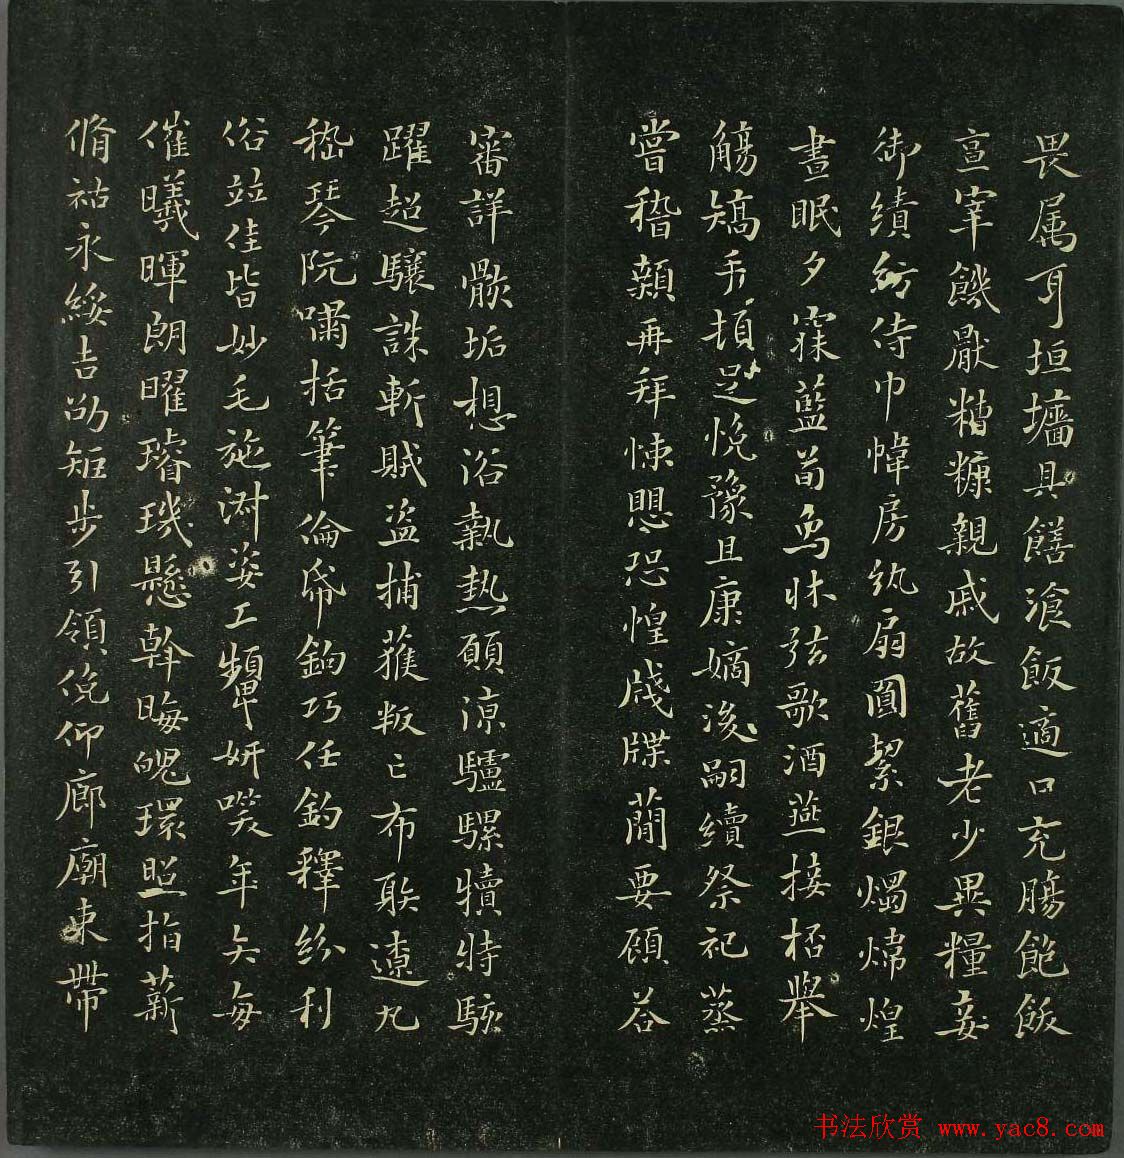 畏属耳垣墻具饍飡飯適口充膓飽飫
亯宰饑厭糟糠親戚故舊老少異糧妾
御績紡侍巾幃房紈扇圓絜銀燭煒煌
晝眠夕寐藍荀象牀弦歌酒燕接桮舉
觴矯手頓足悅豫且康嫡後嗣續祭祀蒸
嘗稽顙再拜悚懼恐惶牋牒蕳要顧荅
審詳骸垢想浴執熱願涼驢騾犢特駭
躍超驤誅斬賊盜捕獲叛亡布射遼丸
嵇琴阮嘯恬筆倫紙鈞巧任釣釋紛利
俗竝佳皆妙毛施淑姿工顰妍咲年矢每
催曦暉朗曜璿璣懸斡晦魄環照指薪
脩祜永綏吉劭矩步引領俛仰廊廟束帶
书法欣赏 www.yac8.com